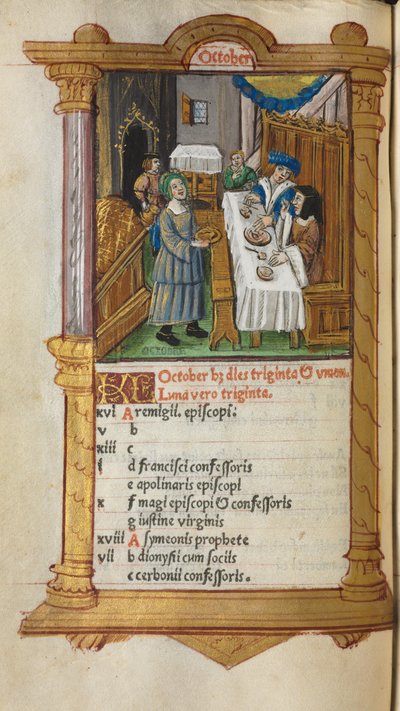 October
OCTOBRE
KL October hz dies triginta & vnum.
Luna vero triginta.
xvi A remigii. episcopi.
v b
xiii c
i d francisci confessoris
e apolinaris episcopi
x f magi episcopi & confessoris
g iustine virginis
xviii A symeonis prophete
vii b dionysii cum sociis
c cerbonii confessoris.